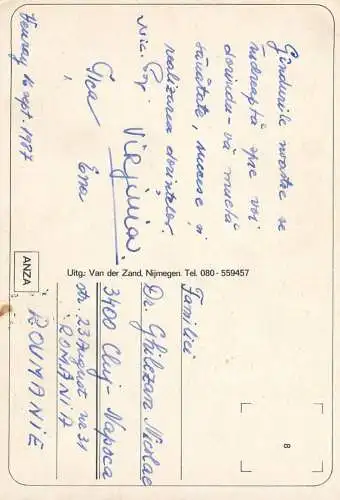 Gîndurile noastre se
îndreaptă spre voi
dorindu-vă multă
sănătate, succese și
realizarea dorințelor.
Virginia
Ema
Heuray 16 sept. 1987
ANZA
Uitg.: Van der Zand, Nijmegen. Tel. 080 - 559457
8
Familiei
Dr. Ghilezan Nicolae
3400 Cluj-Napoca
str. 23 August nr 31
ROMANIA
ROUMANIE